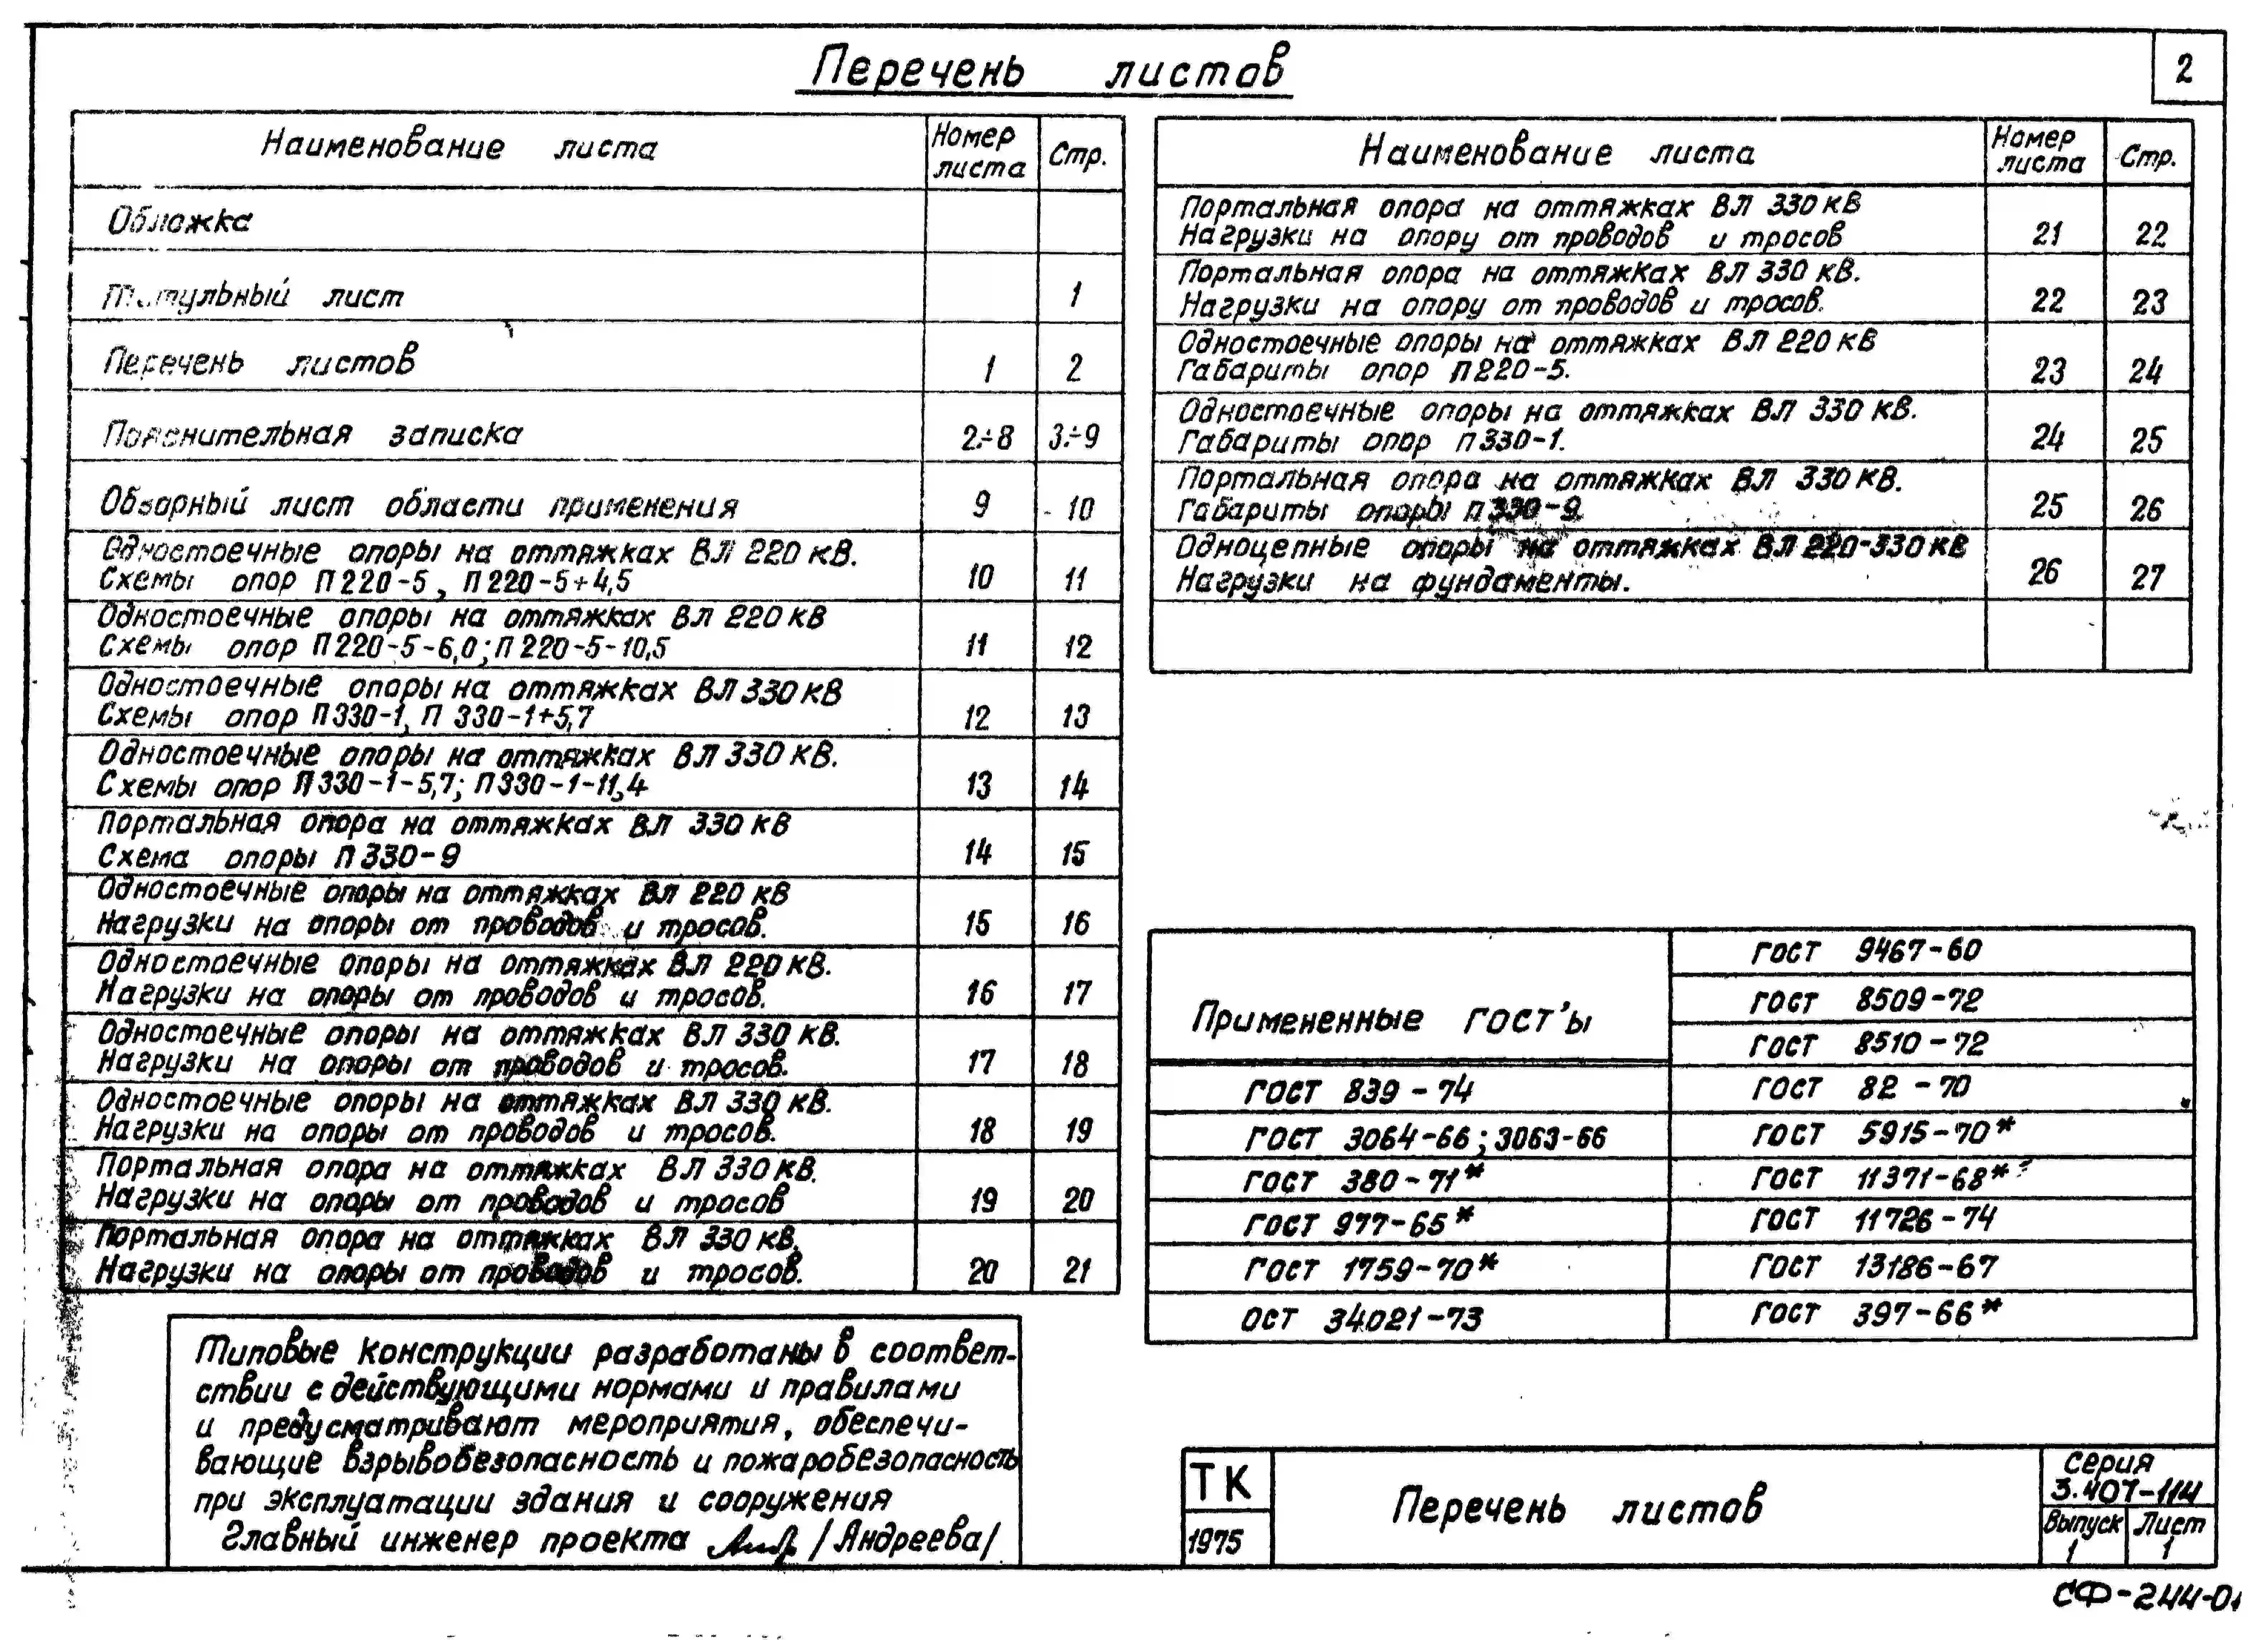 2
Перечень листов
Наименование листа Номер листа Стр.
Обложка
Титульный лист 1
Перечень листов 1 2
Пояснительная записка 2÷8 3÷9
Обзорный лист области применения 9 10
Одностоечные опоры на оттяжках ВЛ 220 кВ.
Схемы опор П220-5, П220-5+4,5 10 11
Одностоечные опоры на оттяжках ВЛ 220 кВ
Схемы опор П220-5-6,0; П220-5-10,5 11 12
Одностоечные опоры на оттяжках ВЛ 330 кВ
Схемы опор П330-1, П 330-1+5,7 12 13
Одностоечные опоры на оттяжках ВЛ 330 кВ.
Схемы опор П330-1-5,7; П330-1-11,4 13 14
Портальная опора на оттяжках ВЛ 330 кВ
Схема опоры П330-9 14 15
Одностоечные опоры на оттяжках ВЛ 220 кВ
Нагрузки на опоры от проводов и тросов. 15 16
Одностоечные опоры на оттяжках ВЛ 220 кВ.
Нагрузки на опоры от проводов и тросов. 16 17
Одностоечные опоры на оттяжках ВЛ 330 кВ.
Нагрузки на опоры от проводов и тросов. 17 18
Одностоечные опоры на оттяжках ВЛ 330 кВ.
Нагрузки на опоры от проводов и тросов. 18 19
Портальная опора на оттяжках ВЛ 330 кВ.
Нагрузки на опоры от проводов и тросов 19 20
Портальная опора на оттяжках ВЛ 330 кВ.
Нагрузки на опоры от проводов и тросов. 20 21
Наименование листа Номер листа Стр.
Портальная опора на оттяжках ВЛ 330 кВ
Нагрузки на опору от проводов и тросов 21 22
Портальная опора на оттяжках ВЛ 330 кВ.
Нагрузки на опору от проводов и тросов. 22 23
Одностоечные опоры на оттяжках ВЛ 220 кВ
Габариты опор П220-5. 23 24
Одностоечные опоры на оттяжках ВЛ 330 кВ.
Габариты опор П330-1. 24 25
Портальная опора на оттяжках ВЛ 330 кВ.
Габариты опоры П330-9. 25 26
Одноцепные опоры на оттяжках ВЛ 220-330 кВ
Нагрузки на фундаменты. 26 27
Примененные ГОСТ'ы
ГОСТ 839-74
ГОСТ 3064-66; 3063-66
ГОСТ 380-71*
ГОСТ 977-65*
ГОСТ 1759-70*
ОСТ 34021-73
ГОСТ 9467-60
ГОСТ 8509-72
ГОСТ 8510-72
ГОСТ 82-70
ГОСТ 5915-70*
ГОСТ 11371-68*
ГОСТ 11726-74
ГОСТ 13186-67
ГОСТ 397-66*
Типовые конструкции разработаны в соответ-
ствии с действующими нормами и правилами
и предусматривают мероприятия, обеспечи-
вающие взрывобезопасность и пожаробезопасность
при эксплуатации здания и сооружения
Главный инженер проекта /Андреева/
ТК
1975
Перечень листов
Серия
3.407-114
Выпуск 1
Лист 1
СФ-244-01